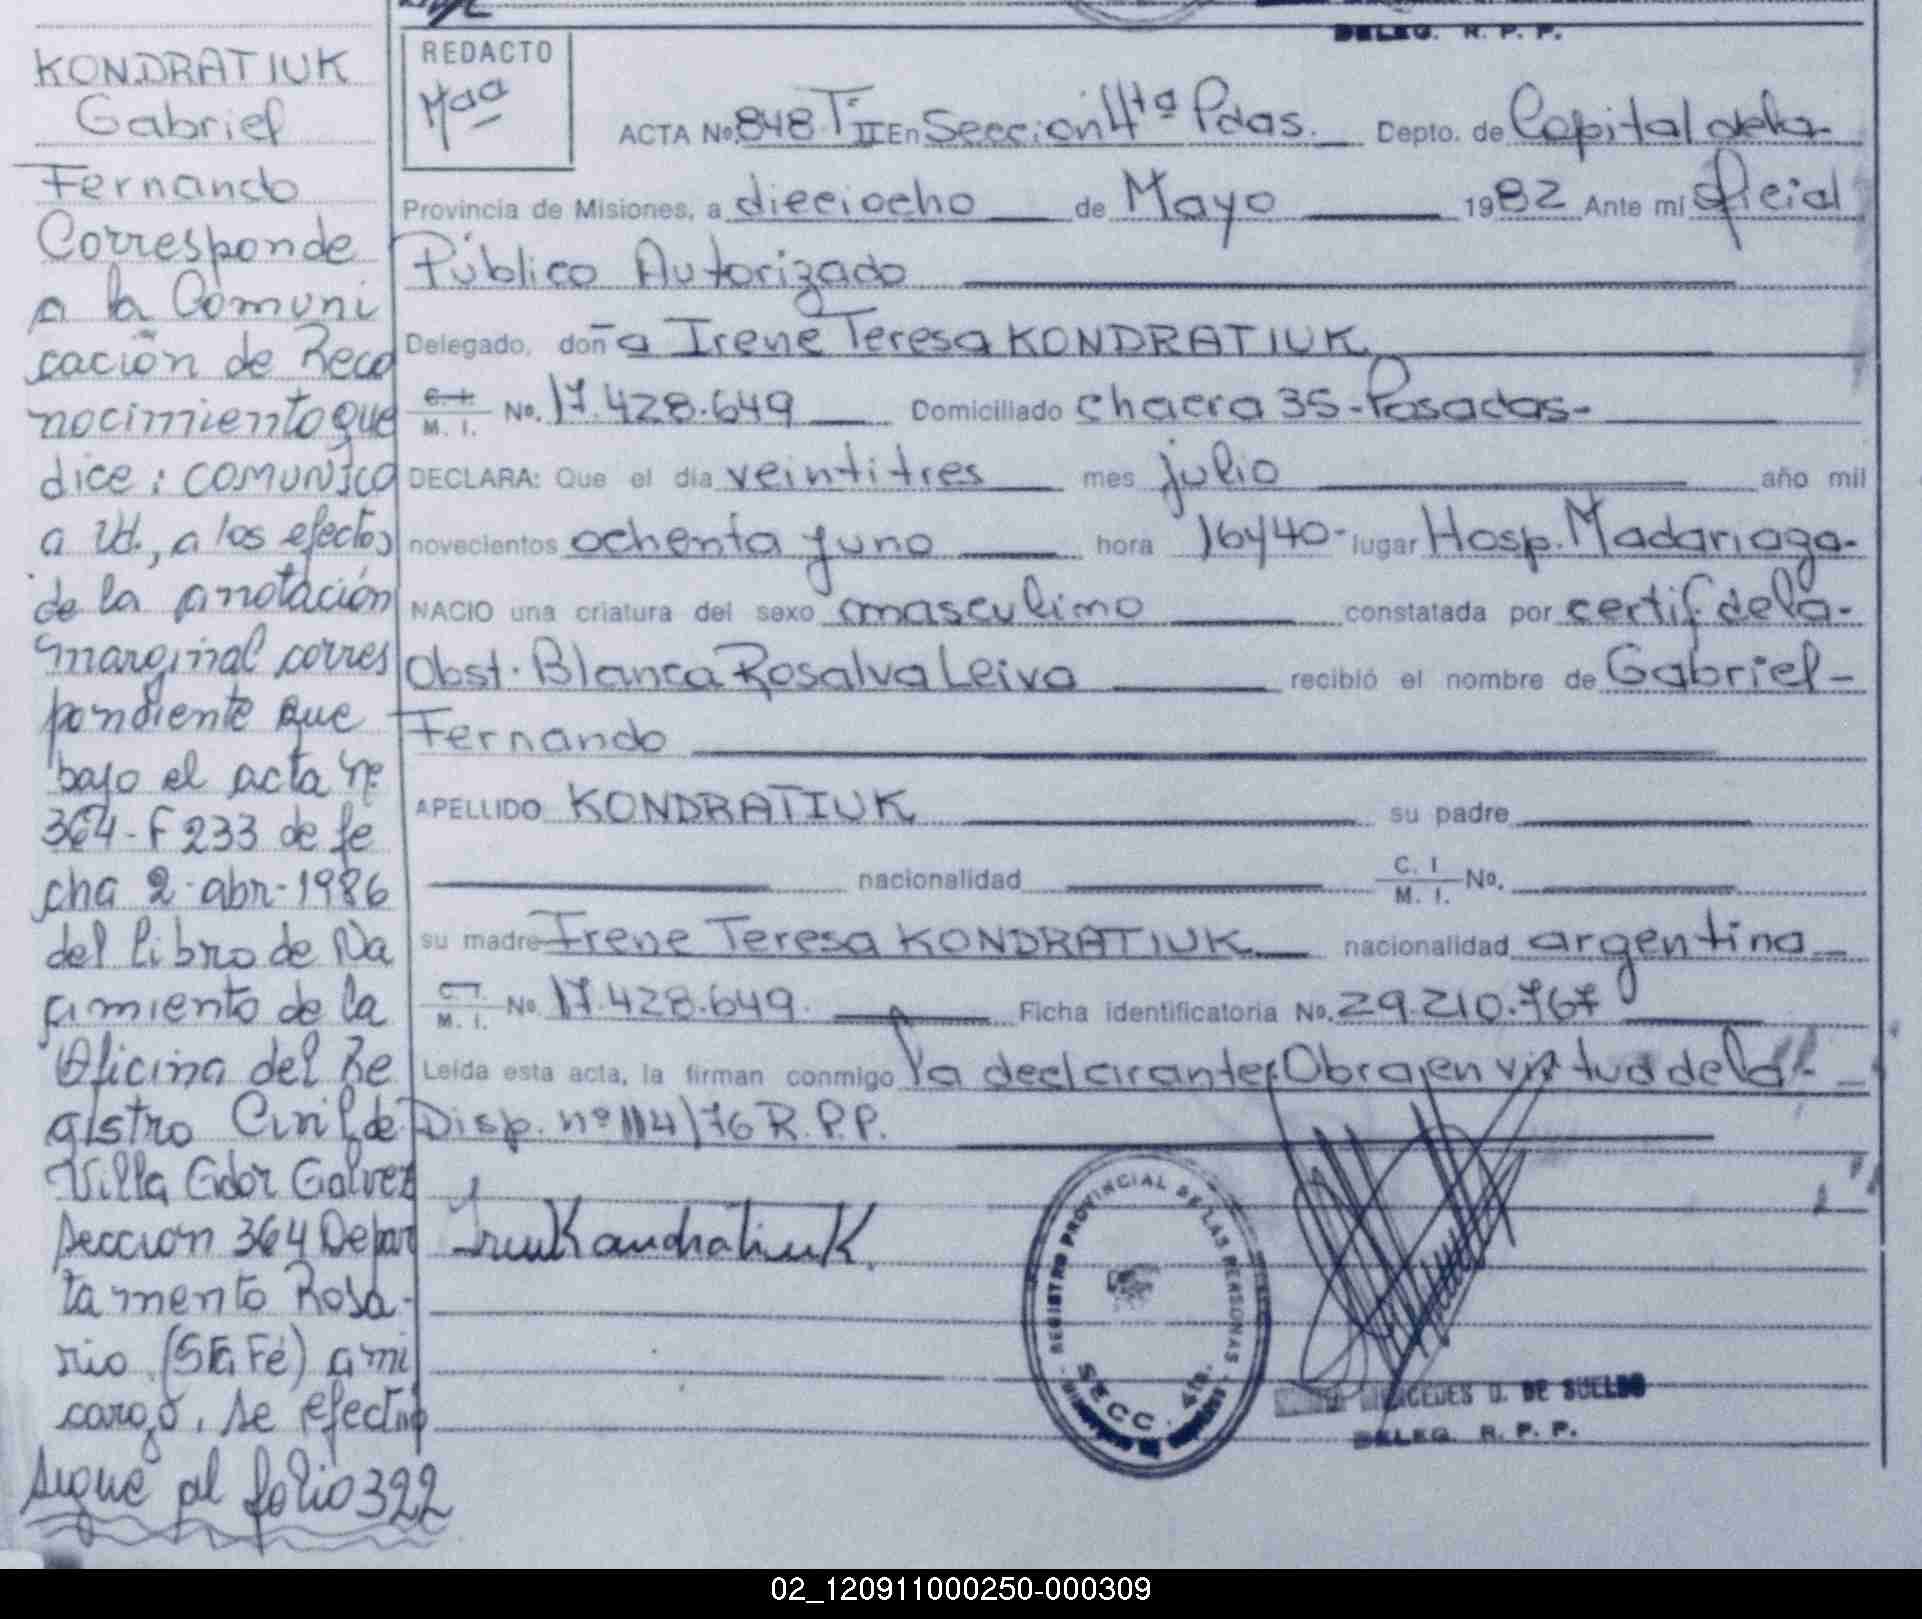 DELEG. R. P. P.
KONDRATIUK
Gabriel
Fernando
Corresponde
a la Comuni
cación de Reco
nocimiento que
dice: comunico
a Vd., a los efectos
de la anotación
marginal corres
pondiente que
bajo el acta nº
364-F 233 de fe
cha 2-abr-1986
del libro de Na
cimiento de la
Oficina del Re
gistro Civil de
Villa Gdor Galvez
seccion 364 Depar
tamento Rosa-
rio (Sta Fé) a mi
cargo, se efectuó
sigue al folio 322
REDACTO
Mªª
ACTA No. 848 T II En Seccion 4ta Pdas. Depto. de Capital de la
Provincia de Misiones, a dieciocho de Mayo 1982 Ante mi oficial
Público Autorizado
Delegado, doña Irene Teresa KONDRATIUK
C. I. M. I. No. 17.428.649 Domiciliado chacra 35-Posadas-
DECLARA: Que el día veintitres mes julio año mil
novecientos ochenta y uno hora 16y40- lugar Hosp. Madariaga-
NACIO una criatura del sexo masculino constatada por certif de la-
Obst. Blanca Rosalva Leiva recibió el nombre de Gabriel-
Fernando
APELLIDO KONDRATIUK su padre
nacionalidad C. I. M. I. No.
su madre Irene Teresa KONDRATIUK nacionalidad argentina
C. I. M. I. No. 17.428.649. Ficha identificatoria No. 29.210.767
Leída esta acta, la firman conmigo la declarante. Obra en virtud de la-
Disp. nº 114/76 R.P.P.
Irene Kondratiuk.
REGISTRO PROVINCIAL DE LAS PERSONAS
SECC. 4ta.
DE SUELDO
DELEG. R. P. P.
02_120911000250-000309